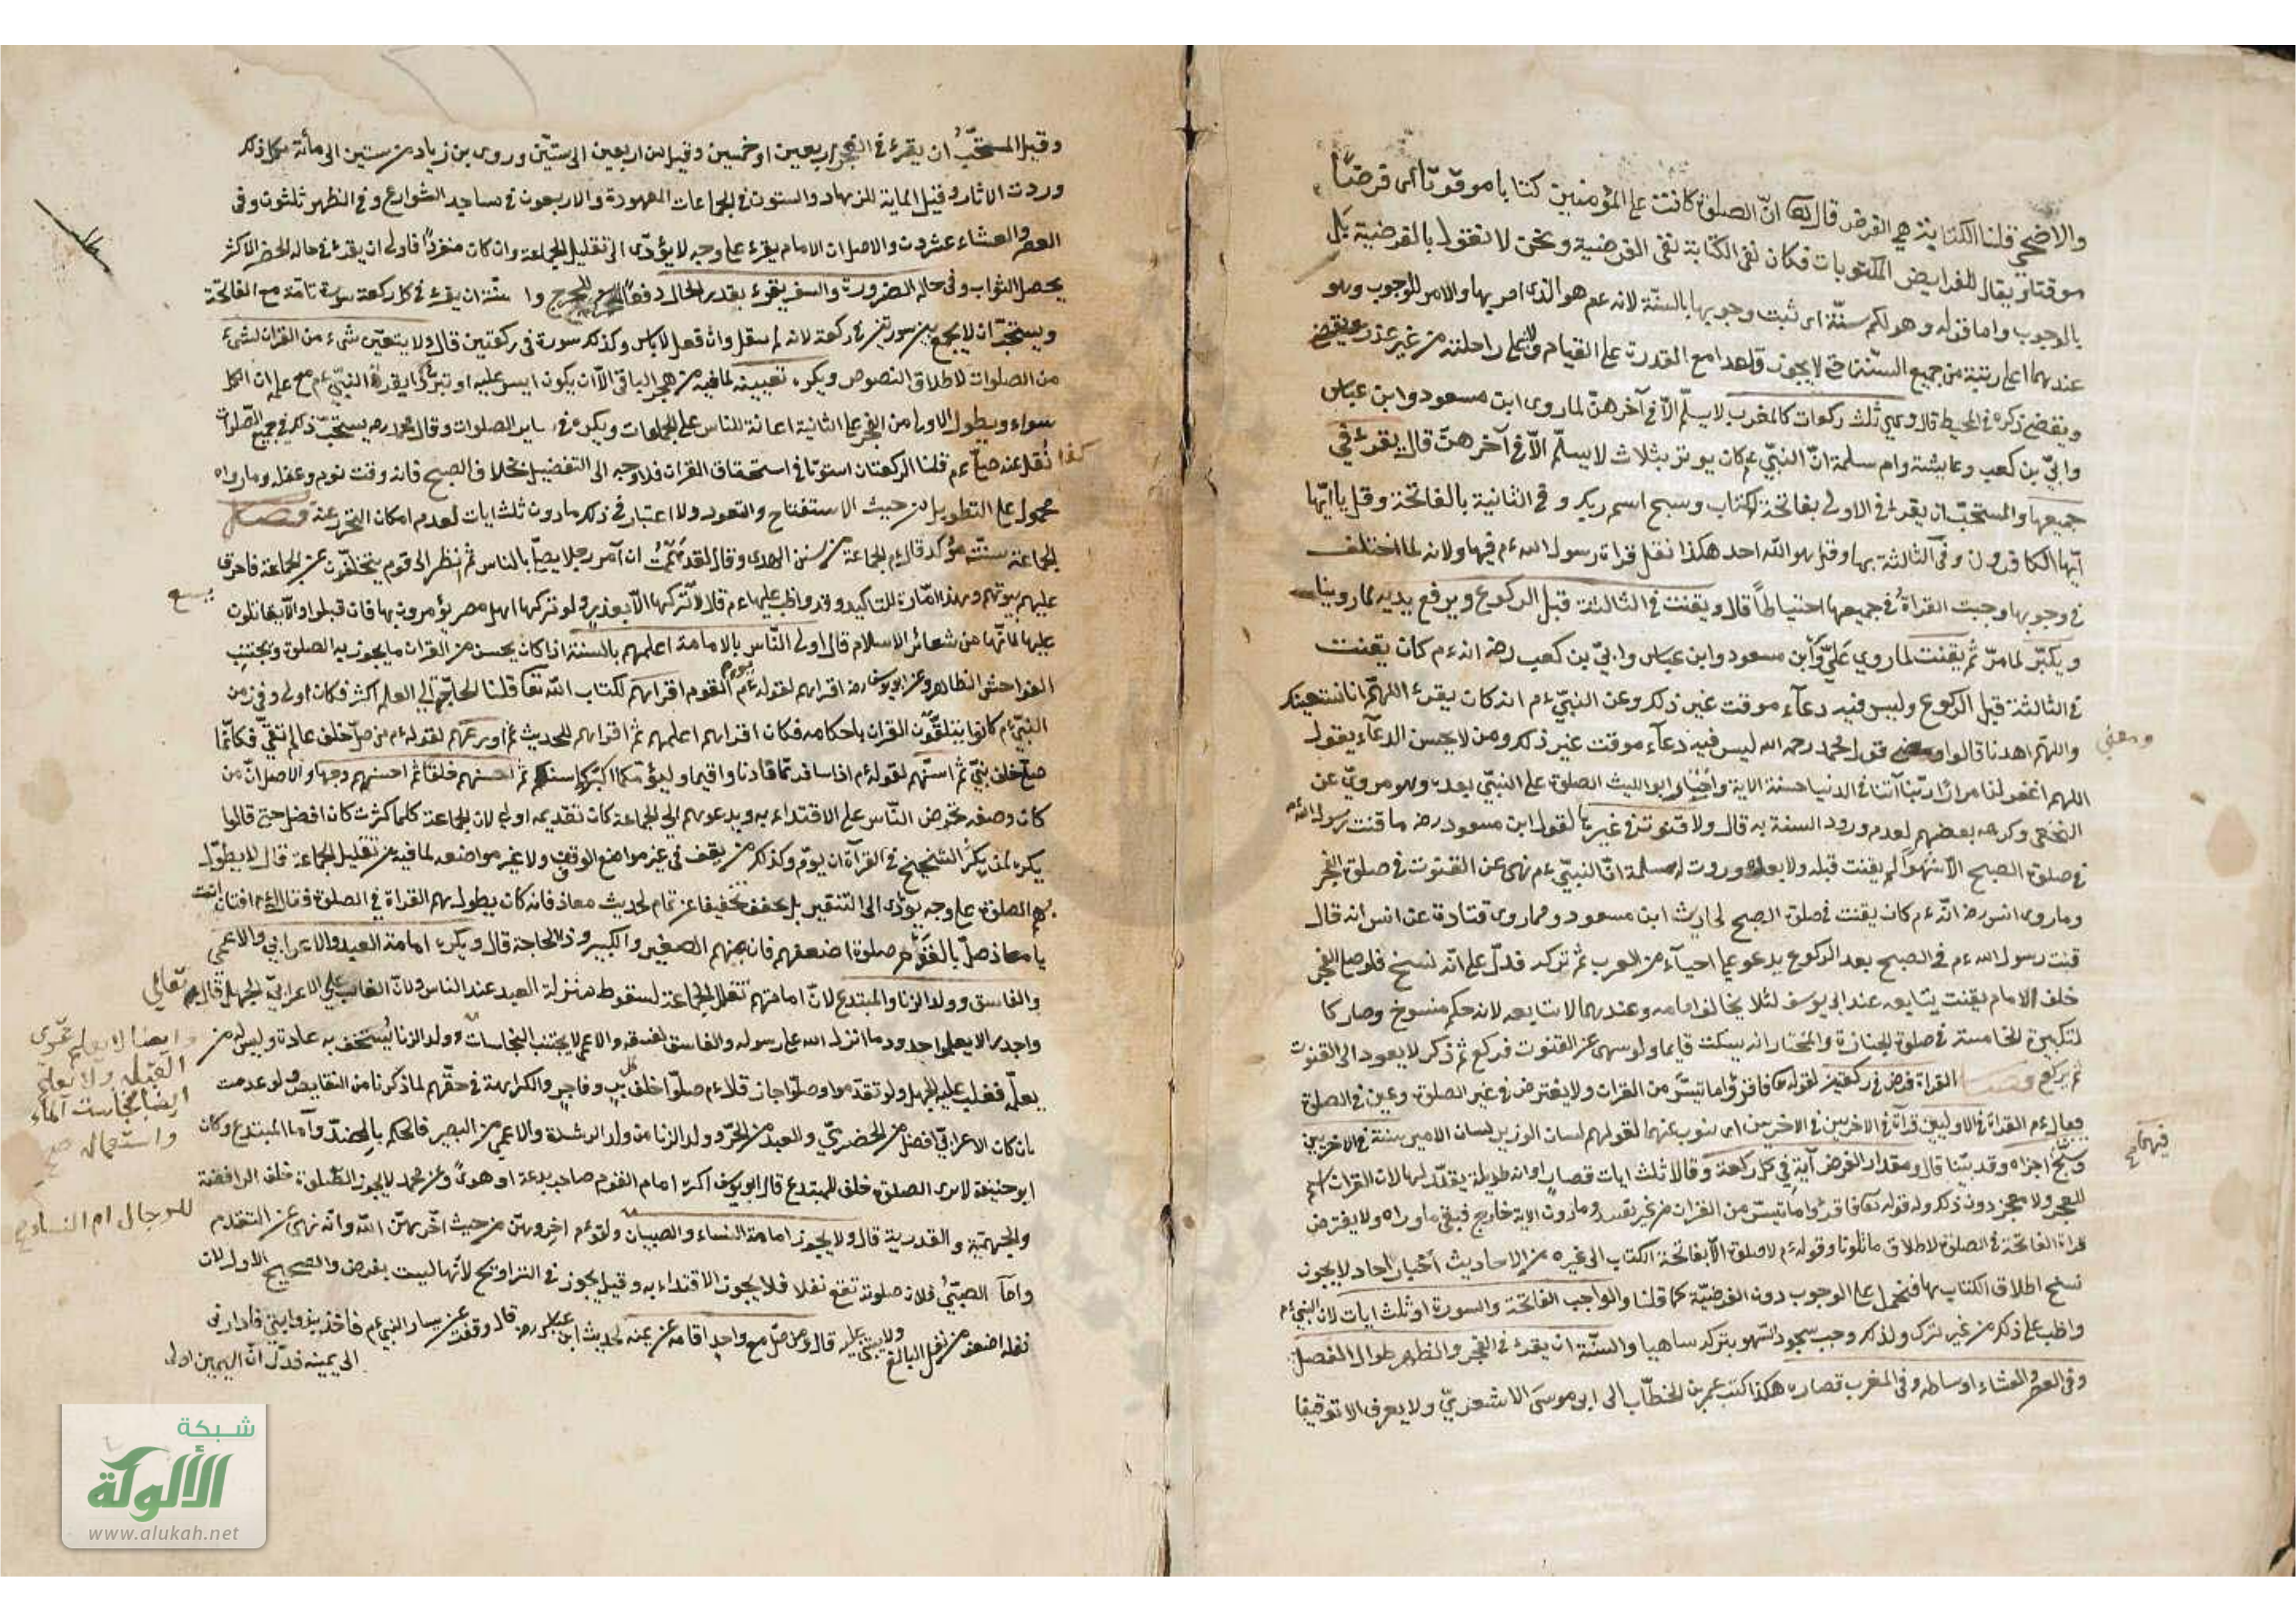 والاضحى قلنا الكتابة هي الفرض قال الله ان الصلوة كانت على المؤمنين كتابا موقوتا اى فرضا
موقتا ويقال للفرايض المكتوبات فكان نفى الكتابة نفى الفرضية ونحن لا نقول بالفرضية بل
بالوجوب واما قوله وهو لكم سنة اى ثبت وجوبها بالسنة لانه عم هو الذى امر بها والامر للوجوب وهو
عندهما اعلى رتبة من جميع السنن حتى لا يجوز قاعدا مع القدرة على القيام ولا على راحلته من غير عذر ويقضى
ذكره فى المحيط قال وهى ثلث ركعات كالمغرب لا يسلم الا فى آخرهن لما روى ابن مسعود وابن عباس
وابى بن كعب وعايشة وام سلمة ان النبى عم كان يوتر بثلاث لا يسلم الا فى آخرهن قال يقرء فى
جميعها والمستحب ان يقرء فى الاولى بفاتحة الكتاب وسبح اسم ربك وفى الثانية بالفاتحة وقل يا ايها
ايها الكافرون وفى الثالثة بها وقل هو الله احد هكذا نقل قراة رسول الله عم فيها ولانه لما اختلف
فى وجوبها وجبت القراة فى جميعها احتياطا قال ويقنت فى الثالثة قبل الركوع ويرفع يديه لما روينا
ويكبر لما مر ثم يقنت لما روي علي وابن مسعود وابن عباس وابي بن كعب رضه انه عم كان يقنت
فى الثالثة قبل الركوع وليس فيه دعاء موقت غير ذلك وعن النبى عم انه كان يقرء اللهم انا نستعينك
واللهم اهدنا قالوا ومعنى قول محمد رحمه الله ليس فيه دعاء موقت غير ذلك ومن لا يحسن الدعاء يقول
ومعنى
اللهم اغفر لنا مرارا ربنا آتنا فى الدنيا حسنة الاية واختار ابو الليث الصلوة على النبى بعده وهو مروي عن
النخعى وكرهه بعضهم لعدم ورود السنة به قال ولا قنوت فى غيرها لقول ابن مسعود رضه ما قنت رسول الله عم
فى صلوة الصبح الا شهرا لم يقنت قبله ولا بعده وروت ام سلمة ان النبى عم نهى عن القنوت فى صلوة الفجر
وما روى انس رضه انه عم كان يقنت فى صلوة الصبح لحديث ابن مسعود وما روى قتادة عن انس انه قال
قنت رسول الله عم فى الصبح بعد الركوع يدعو على احياء من العرب ثم تركه فدل على انه نسخ فلو صلى الفجر
خلف الامام يقنت يتابعه عند ابى يوسف لئلا يخالف امامه وعندهما لا يتابعه لانه حكم منسوخ وصار كا
لتكبيرة الخامسة فى صلوة الجنازة والمختار انه يسكت قايما ولو سهى عن القنوت فركع ثم ذكر لا يعود الى القنوت
ثم يركع فصل القراة فرض فى ركعتين لقوله تعا فاقرؤا ما تيسر من القران ولا يفترض فى غير الصلوة وعين فى الصلوة
فقال عم القراة فى الاوليين قراة فى الاخريين اى ينوب عنهما لقولهم لسان الوزير لسان الامير سنة فى الاخريين
فيهما صح
وسبح اجزاه وقد بينا قال ومقدار الفرض آية فى كل ركعة وقالا ثلث ايات قصار او اية طويلة يقدلها لان القران اسم
للمعجز ولا معجز دون ذلك وله قوله تعا فاقرؤا ما تيسر من القران من غير تقييد وما دون الاية خارج فبقى ما وراه ولا يفترض
قراة الفاتحة فى الصلوة لاطلاق ما تلونا وقوله عم لا صلوة الا بفاتحة الكتاب الى غيره من الاحاديث اخبار احاد لا يجوز
نسخ اطلاق الكتاب بها فيحمل على الوجوب دون الفرضية كما قلنا والواجب الفاتحة والسورة او ثلث ايات لان النبى عم
واظب على ذلك من غير ترك ولذلك وجب سجود السهو بتركه ساهيا والسنة ان يقرء فى الفجر والظهر طوال المفصل
وفى العصر والعشاء اوساطه وفى المغرب قصاره هكذا كتب عمر بن الخطاب الى ابى موسى الاشعري ولا يعرف الا توقيفا
وقيل المستحب ان يقرء فى الفجر اربعين او خمسين وقيل من اربعين الى ستين وروى بن زياد من ستين الى مأئة بكل ذلك
وردت الاثار وقيل الماية للزهاد والستون فى الجماعات المعهودة والاربعون فى مساجد الشوارع وفى الظهر ثلثون وفى
العصر والعشاء عشرون والاصل ان الامام يقرء على وجه لا يؤدى الى تقليل الجماعة وان كان منفردا فاولى ان يقرء فى حالة الحضر الاكثر
يحصل الثواب وفى حالة الضرورت والسفر يقرء بقدر الحال دفعا للحرج وا سنة ان يقرء فى كل ركعة سورة تامة مع الفاتحة
ويستحب ان لا يجمع بين سورتين فى ركعة لانه لم ينقل وان فعل لا باس وكذلك سورة فى ركعتين قال ولا يتعين شىء من القران لشىء
من الصلوات لاطلاق النصوص ويكره تعيينه لما فيه من هجر الباقى الا ان يكون ايسر عليه او تبركا بقراة النبى عم مع علمه ان الكل
سواء ويطول الاولى من الفجر على الثانية اعانة للناس على الجماعات ويكره فى ساير الصلوات وقال محمد رحه يستحب ذلك فى جميع الصلوات
كذا نقل عنه عم قلنا الركعتان استوتا فى استحقاق القران فلا وجه الى التفضيل بخلاف الصبح فانه وقت نوم وغفلة وما رواه
محمول على التطويل من حيث الاستفتاح والتعوذ ولا اعتبار فى ذلك ما دون ثلث ايات لعدم امكان التحرز عنه فصل
الجماعة سنة مؤكد قال عم الجماعة من سنن الهدى وقال لقد هممت ان آمر رجلا يصلى بالناس ثم انظر الى قوم يتخلفون عن الجماعة فاحرق
عليهم بيوتهم وهذا امارة للتاكيد وقد واظب عليها عم قال لا تركها الا بعذر ولو تركها اهل مصر يؤمرون بها فان قبلوا والا يقاتلون
عليها لانها من شعائر الاسلام قال اولى الناس بالامامة اعلمهم بالسنة اذا كان يحسن من القران ما يجوز به الصلوة ويجتنب
الفواحش الظاهرة وعن ابى يوسف رضه اقراهم لقوله عم يؤم القوم اقراهم لكتاب الله تعا قلنا الحاجة الى العلم اكثر فكان اولى وفى زمن
النبى عم كانوا يتلقون القران باحكامه فكان اقراهم اعلمهم ثم اقراهم للحديث ثم اورعهم لقوله عم من صلى خلف عالم تقي فكانما
صلى خلف نبى ثم اسنهم لقوله عم اذا سافرتما فاذنا واقيما وليؤمكما اكبركما سنا ثم احسنهم خلقا ثم احسنهم وجها والاصل ان من
كان وصفه يحرض الناس على الاقتداء به ويدعوهم الى الجماعة كان تقديمه اولى لان الجماعة كلما كثرت كان افضل حتى قالوا
يكره لمن يكثر التنحنح فى القراة ان يؤم وكذلك من يقف فى غير مواضع الوقف ولا غير مواضعه لما فيه من تقليل الجماعة قال لا يطول
بهم الصلوة على وجه يؤدى الى التنفير بل يخفف تخفيفا عن تمام لحديث معاذ فانه كان يطول بهم القراة فى الصلوة فقال عم افتان انت
يا معاذ صل بالقوم صلوة اضعفهم فان منهم الصغير والكبير وذا الحاجة قال ويكره امامة العبد والاعرابى والاعمى
والفاسق وولد الزنا والمبتدع لان امامتهم تقلل الجماعة لسقوط منزلة العبد عند الناس ولان الغالب على الاعرابى الجهل قال تعالى
واجدر الا يعلموا حدود ما انزل الله على رسوله والفاسق لفسقه والاعمى لا يجتنب النجاسات وولد الزنا يستخف به عادة وليس له من
وايضا لا يعلم تحرى
القبلة ولا يعلم
ايضا نجاست الماء
واستعماله صح
يعلمه فغلب عليه الجهل ولو تقدموا وصلوا جاز قال عم صلوا خلف كل بر وفاجر والكراهة فى حقهم لما ذكرنا من النقايص ولو عدمت
بان كان الاعرابى افضل من الحضري والعبد من الحر وولد الزنا من ولد الرشدة والاعمى من البصير فالحكم بالضد واما المبتدع وكان
ابو حنيفة لا يرى الصلوة خلف المبتدع قال ابو يوسف اكره امام القوم صاحب بدعة او هوى وعن محمد لا يجوز الصلوة خلف الرافضة
والجهمية والقدرية قال ولا يجوز امامة النساء والصبيان ولقوله عم اخروهن من حيث اخرهن الله وانه نهى عن التقدم
للرجال ام النساء صح
واما الصبى فلان صلوته تقع نفلا فلا يجوز الاقتداء به وقيل يجوز فى التراويح لانها ليست بفرض والصحيح الاول لان
نفله اضعف من نفل البالغ ولا يبنى عليه قال ومن صلى مع واحد اقامه عن يمنه لحديث ابن عباس رضه قال وقفت عن يسار النبى عم فاخذ بذوابتى فادارنى
الى يمينه فدل ان اليمين اولى
شبكة
الألوكة
www.alukah.net